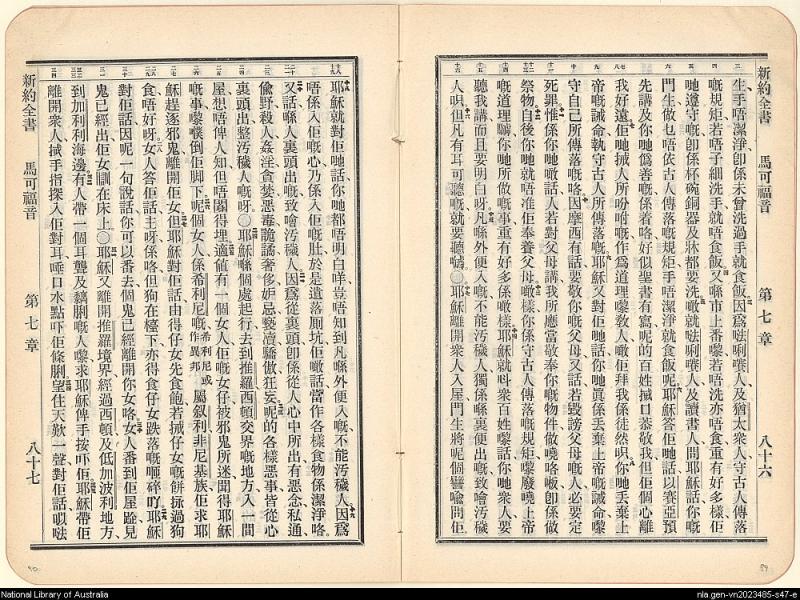 新約全書 馬可福音 第七章 八十六
生手唔潔淨卽係未曾洗過手就食飯因爲唎人及猶太衆人守古人傳落
嘅規矩若唔仔細洗手就唔食飯又喺市上番嚟若唔洗亦唔食重有好多樣佢
哋遵守嘅卽係杯碗銅器及牀都要洗嘅就唎人及讀書人問耶穌話你嘅
門生做乜唔依古人傳落嘅規矩手唔潔淨就食飯呢耶穌答佢哋話以賽亞預
先講及你哋僞善嘅係着咯好似聖書有寫呢的百姓揻口恭敬我但佢個心離
我好遠佢哋揻人所吩咐嘅作爲道理嚟教人噉佢拜我係徒然唄你哋丟棄上
帝嘅誡命執守古人所傳落嘅耶穌又對佢哋話你哋眞係丟棄上帝嘅誡命嚟
守自己所傳落嘅咯因摩西有話要敬你嘅父母又話若毀謗父母嘅人必要定
死罪惟係你哋噉話人若對父母講我所應當敬奉你嘅物件做咯卽係做
祭物自後你哋就唔准佢奉養父母噉樣你哋係守古人傳落嘅規矩嚟廢曉上帝
嘅道理你哋所做嘅事重有好多係噉樣耶穌就呌衆百姓嚟話你哋衆人要
聽我講而且要明白呀凡喺外便入嘅不能汚穢人獨係喺裏便出嘅致汚穢
人唄但凡有耳可聽嘅就要聽○耶穌離開衆人入屋門生將呢個譬喻問佢
新約全書 馬可福音 第七章 八十七
耶穌就對佢哋話你哋都唔明白咩豈唔知到凡喺外便入嘅不能汚穢人因爲
唔係入佢嘅心乃係入佢嘅肚於是遺落厠坑佢噉話當作各樣食物係潔淨咯
又話喺人裏頭出嘅致噲汚穢人因爲從裏頭卽係從人心中所出有惡念私通
偷野殺人姦淫貪婪惡毒詭譎奢侈妒忌褻瀆驕傲狂妄呢的各樣惡事皆從心
裏頭出整汚穢人嘅呀○耶穌喺個處起行去到推羅西頓交界嘅地方入一間
屋想唔俾人知但唔閣得埋適値有一個女人佢嘅女仔被邪鬼所迷聞得耶穌
嘅事嚟僕倒佢脚下呢個女人係希利尼嘅希利尼或作異邦屬叙利非尼基族佢求耶
穌趕逐邪鬼離開佢女但耶穌對佢話由得仔女先食飽若揻仔女嘅餅掞過狗
食唔好呀女人答佢話主呀係咯但狗在檯下亦得食仔女跌落嘅碎吖耶穌
對佢話因呢一句說話你可以番去個鬼已經離開你女咯女人番到佢屋睇見
鬼已經出佢女瞓在床上○耶穌又離開推羅境界經過西頓及低加波利地方
到加利利海邊有人帶一個耳聾及黐脷嘅人嚟求耶穌俾手按吓佢耶穌帶佢
離開衆人揻手指探入佢對耳唾口水點吓佢條脷望住天歎一聲對佢話以
National Library of Australia
nla.gen-vn2023485-s47-e